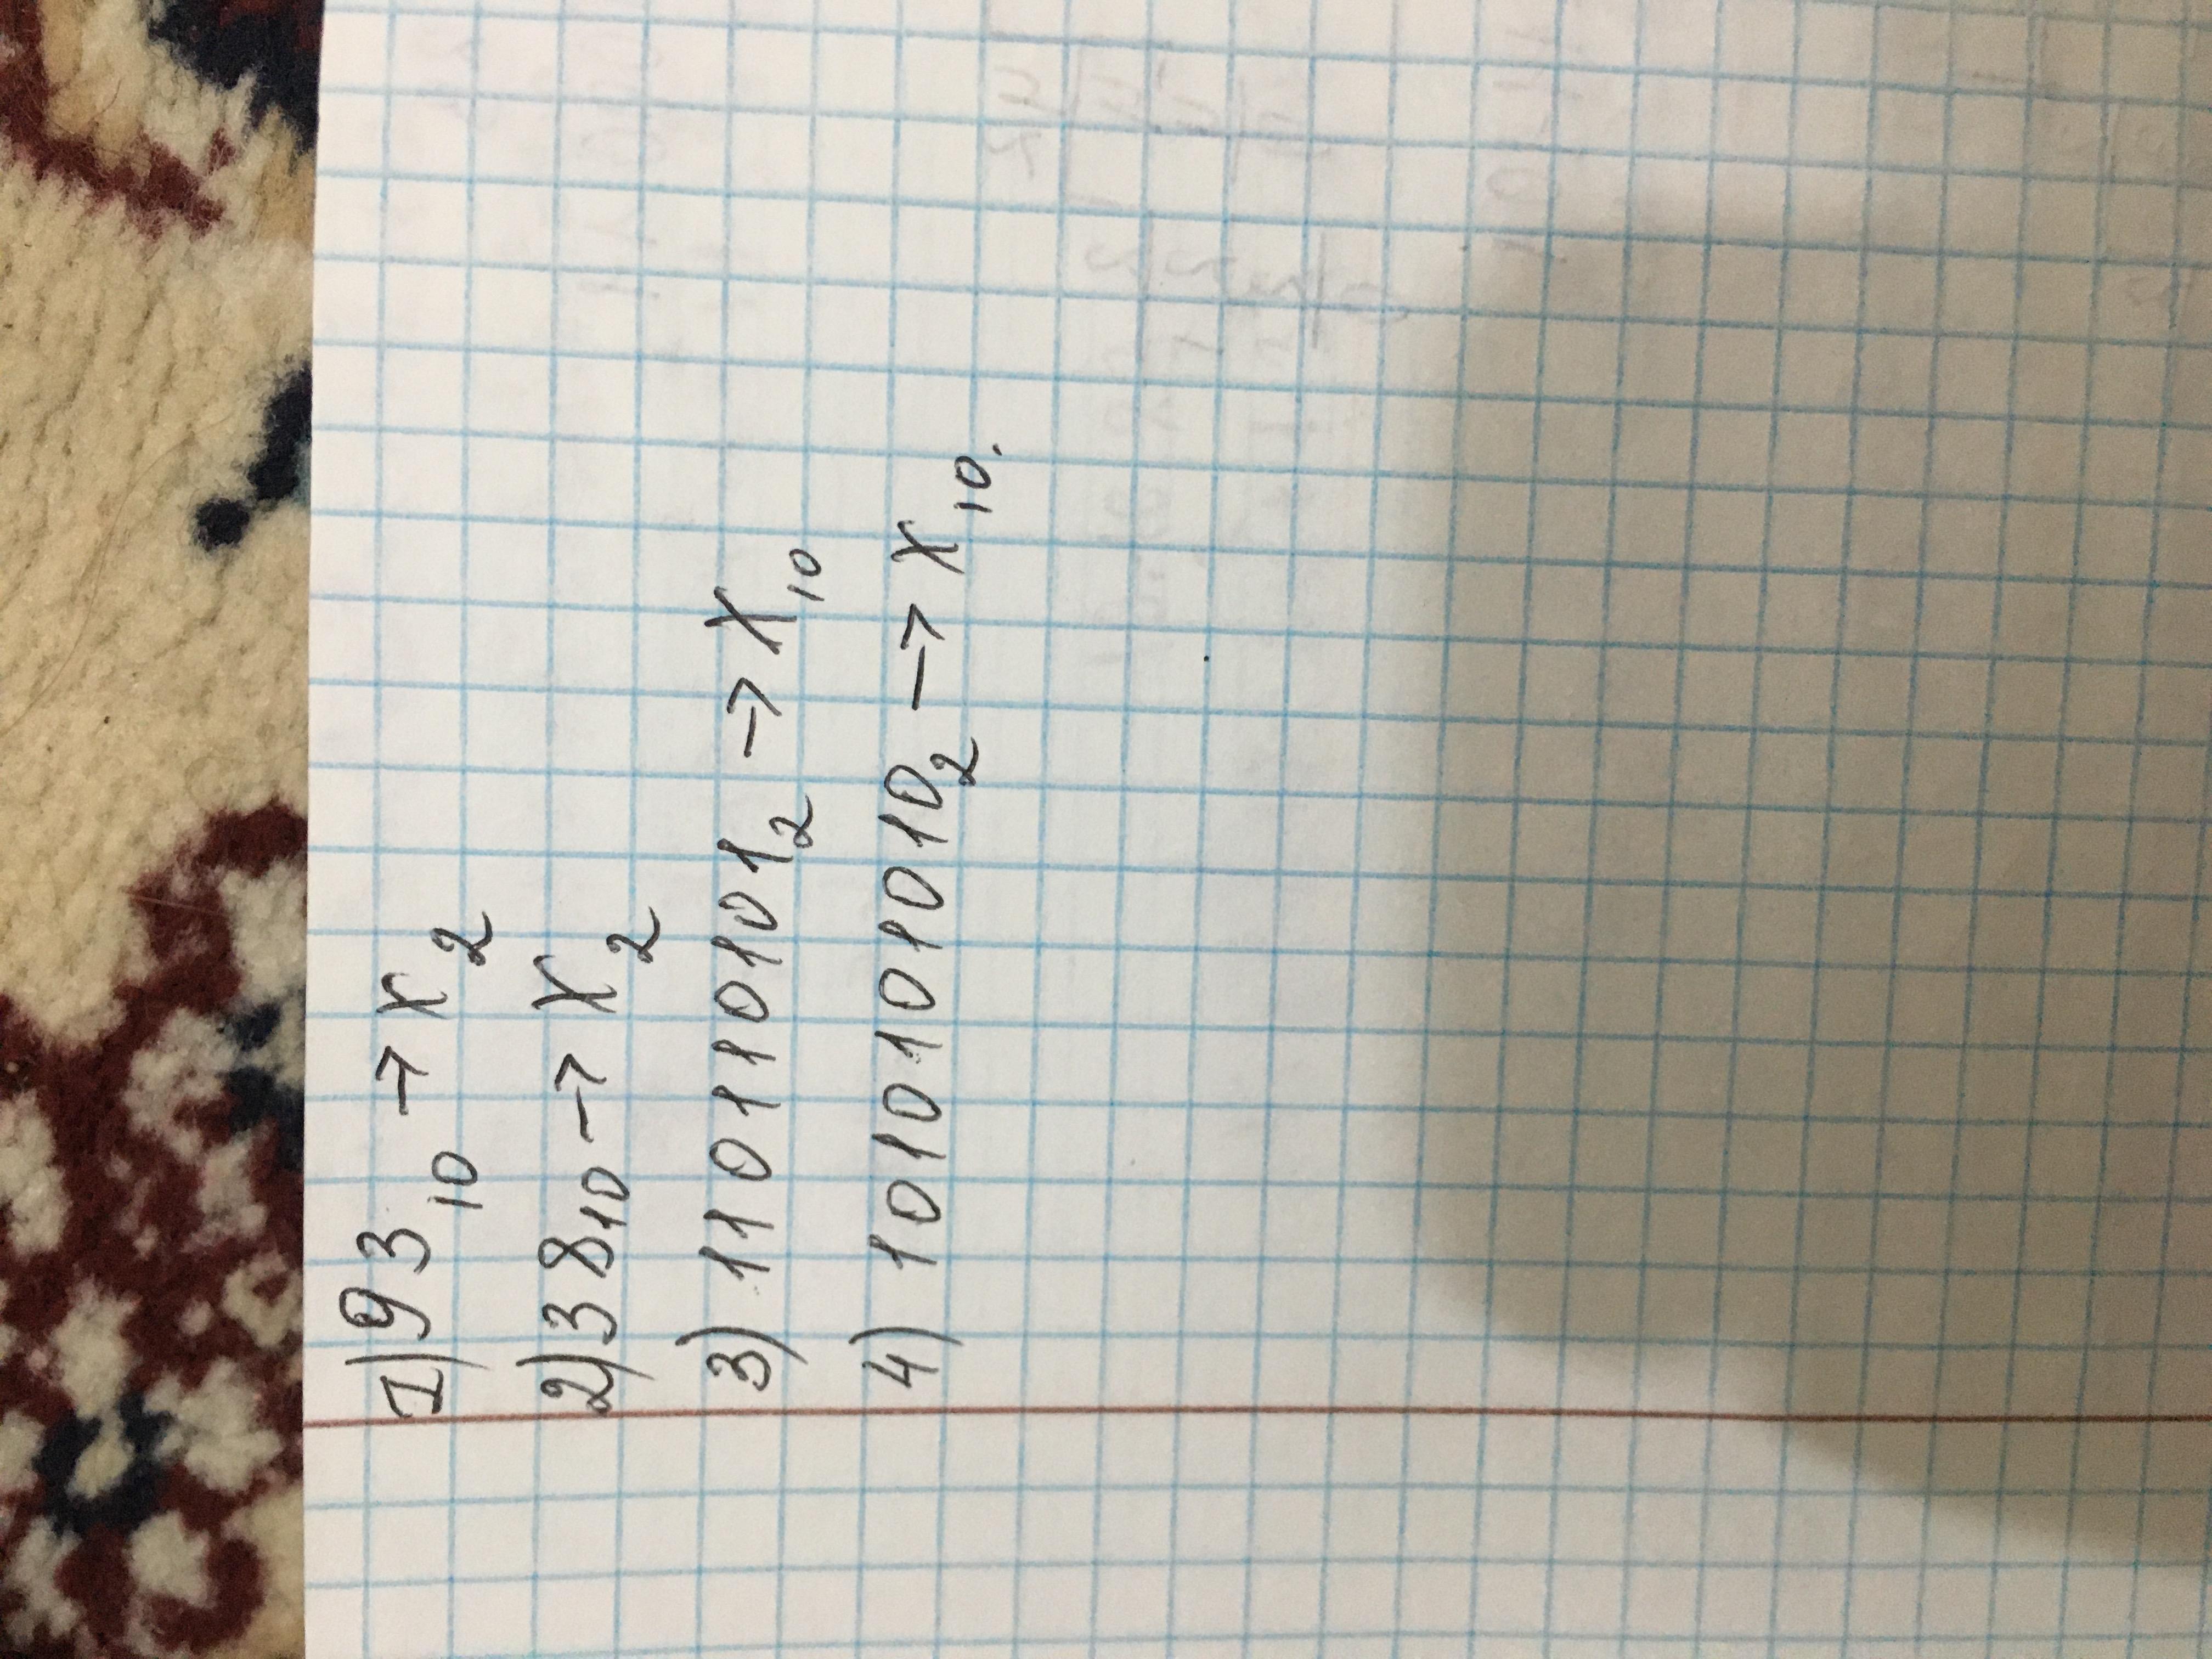 1) 93₁₀ → X₂
2) 38₁₀ → X₂
3) 110110101₂ → X₁₀
4) 1010101010₂ → X₁₀.